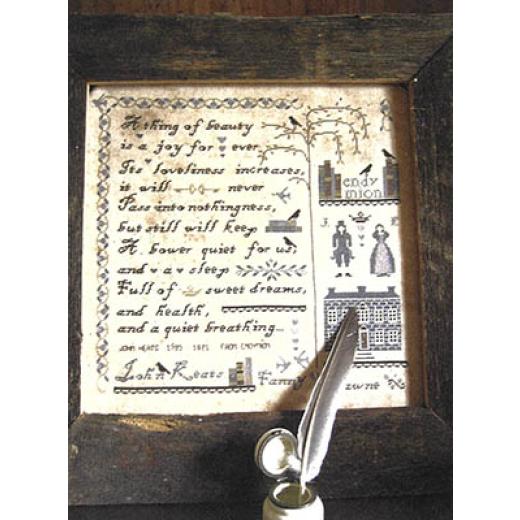 A thing of beauty
is a joy for ever
Its loveliness increases,
it will never
Pass into nothingness,
but still will keep
A bower quiet for us,
and a sleep
Full of sweet dreams,
and health,
and a quiet breathing...
JOHN KEATS 1795 1821 FROM ENDYMION
John Keats Fanny awne
endy
mion
J. F